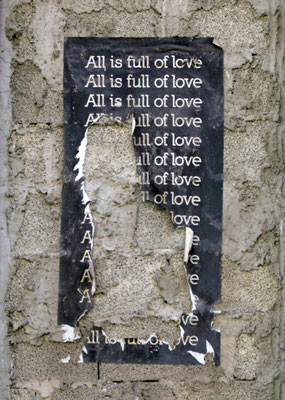 All is full of love
All is full of love
All is full of love
All is full of love
full of love
ull of love
ull of love
ll of love
A love
A ve
A ve
A ve
A
love
All is full of love